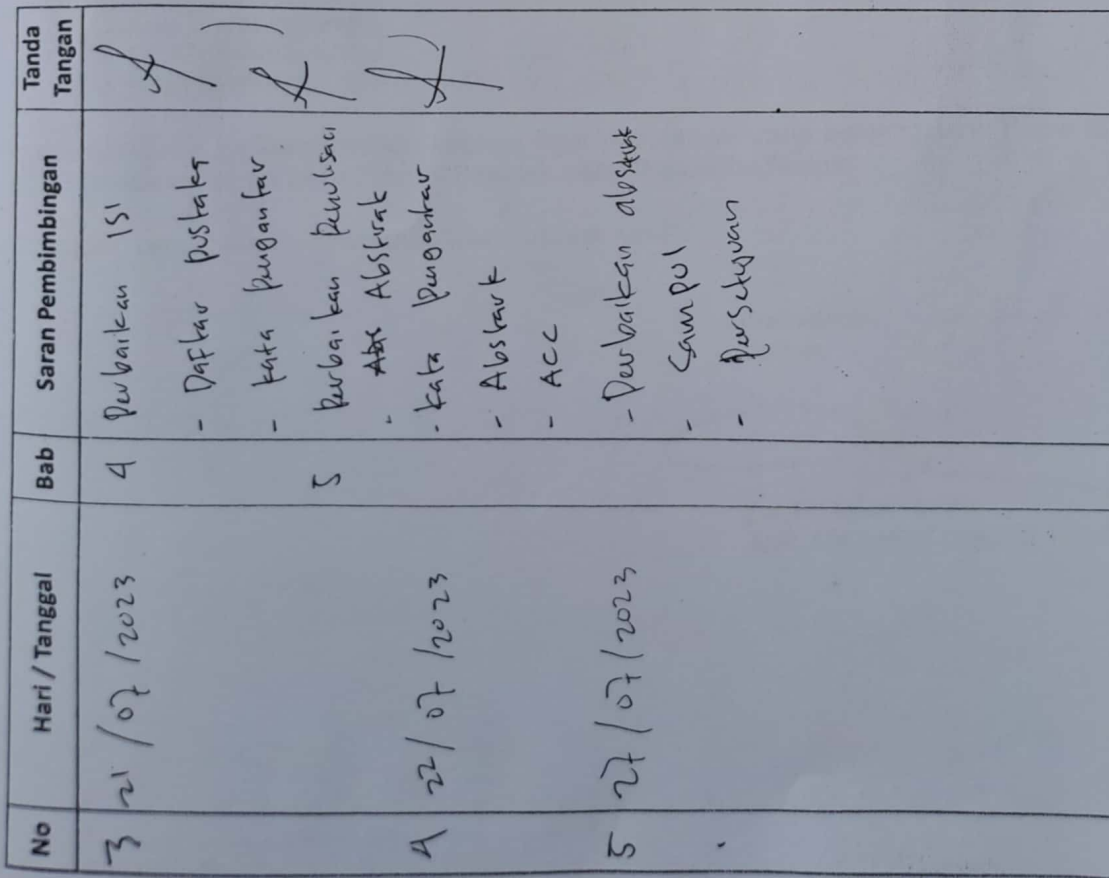 No Hari / Tanggal Bab Saran Pembimbingan Tanda Tangan
3 21/07/2023 4 Perbaikan ISI
- Daftar pustaka
- kata pengantar
5 perbaikan penulisan
Abs Abstrak
- kata pengantar
4 22/07/2023
- Abstark
- ACC
5 27/07/2023 - Perbaikan abstrak
- Sampul
- Persetujuan